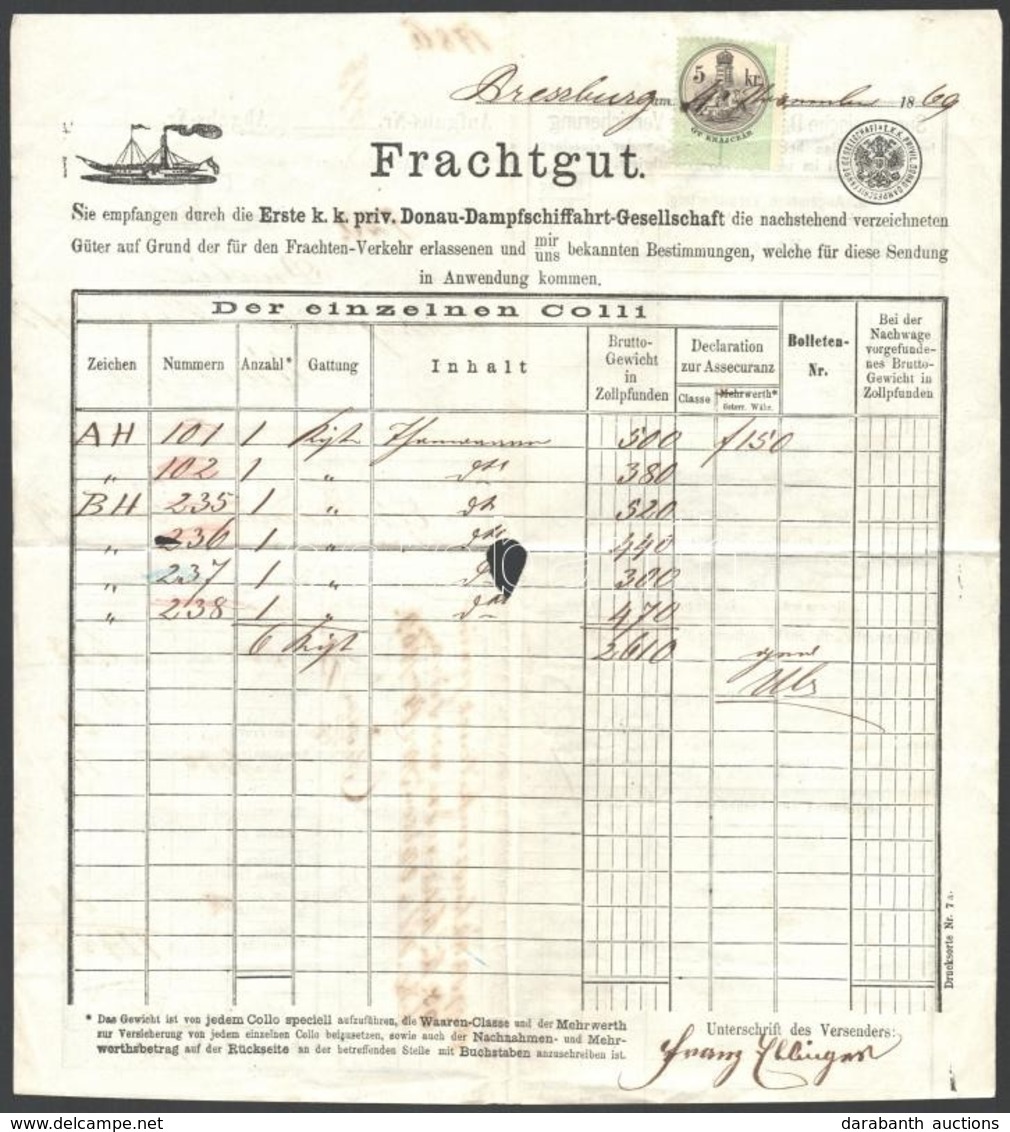 Pressburg am 1869
5 kr.
ÖT KRAJCZÁR
ERSTE K.K. PRIVIL. DONAU-DAMPFSCHIFFAHRT-GESELLSCHAFT
Frachtgut.
Sie empfangen durch die Erste k. k. priv. Donau-Dampfschiffahrt-Gesellschaft die nachstehend verzeichneten
Güter auf Grund der für den Frachten-Verkehr erlassenen und mir/uns bekannten Bestimmungen, welche für diese Sendung
in Anwendung kommen.
Der einzelnen Colli
Zeichen Nummern Anzahl* Gattung Inhalt Brutto-Gewicht in Zollpfunden Declaration zur Assecuranz Classe Mehrwerth* österr. Währ. Bolleten-Nr. Bei der Nachwage vorgefundenes Brutto-Gewicht in Zollpfunden
AH 101 1 Kist 500 f 150
„ 102 1 „ dto 380
BH 235 1 „ dto 520
„ 236 1 „ dto 440
„ 237 1 „ 300
„ 238 1 „ dto 470
6 Kist 2610
* Das Gewicht ist von jedem Collo speciell aufzuführen, die Waaren-Classe und der Mehrwerth
zur Versicherung von jedem einzelnen Collo beizusetzen, sowie auch der Nachnahmen- und Mehr-
werthsbetrag auf der Rückseite an der betreffenden Stelle mit Buchstaben anzuschreiben ist.
Unterschrift des Versenders:
Franz Edlinger
Drucksorte Nr. 7 a.
darabanth auctions